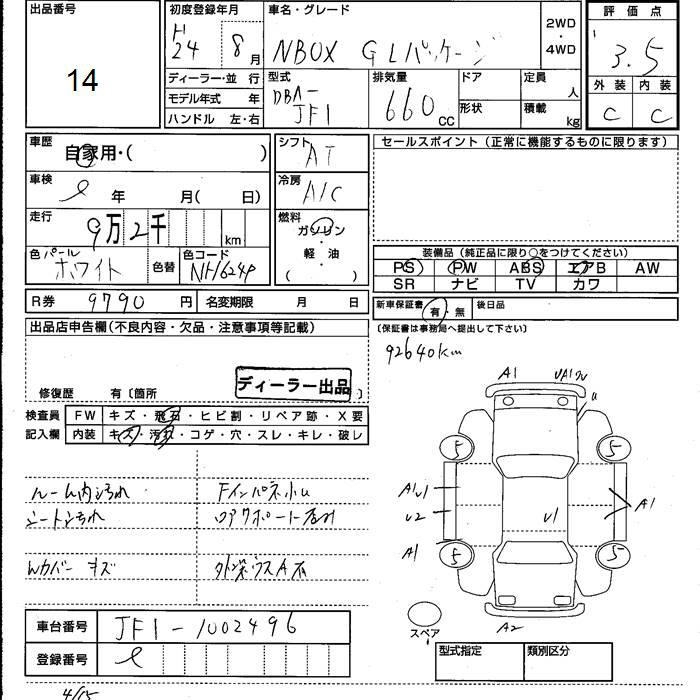 出品番号
14
初度登録年月
H
24 8 月
車名・グレード
NBOX GLパッケージ
2WD
・
4WD
評価点
3.5
外装 内装
C C
ディーラー・並行
モデル年式 年
ハンドル 左・右
型式
DBA-
JF1
排気量
660 CC
ドア
形状
定員
人
積載
kg
車歴
自家用・( )
車検
年 月( 日)
走行
9万2千 km
色 パール
ホワイト
色替
色コード
NH624P
シフト
AT
冷房
A/C
燃料
ガソリン
・
軽・油
( )
セールスポイント(正常に機能するものに限ります)
装備品(純正品に限り○をつけてください)
PS PW ABS エアB AW
SR ナビ TV カワ
R券 9790 円 名変期限 月 日
新車保証書 有・無 後日品
(保証書は事務局へ提出して下さい)
92640km
出品店申告欄(不良内容・欠品・注意事項等記載)
ディーラー出品
修復歴 有〔箇所 〕
検査員
記入欄
FW キズ・飛石・ヒビ割・リペア跡・X要
内装 キズ・汚れ・コゲ・穴・スレ・キレ・破レ
ルーム内汚れ
シート汚れ
Wカバー キズ
A1
5 5
A1U1
U2
U1
A1
A1
5 5
スペア
A2
車台番号 JF1-1002496
登録番号
型式指定 類別区分
4/15